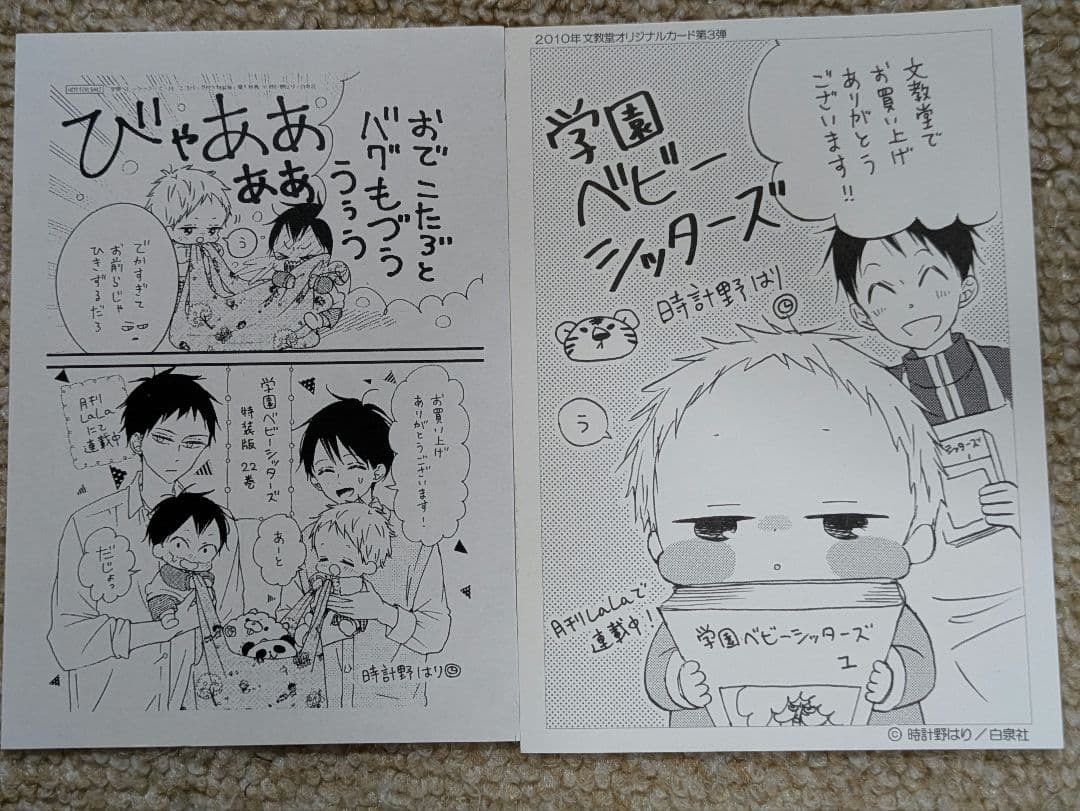 NOT FOR SALE
びゃああ
ぁあ
おでこたぶと
バグもづう
うぅう
う
でかすぎて
お前らじゃ
ひきずるだろ
月刊
LaLa
にて
連載中
学園ベビーシッターズ
特装版 22巻
お買い上げ
ありがとうございます!
だじょっ
あーと
時計野はり
2010年文教堂オリジナルカード第3弾
文教堂で
お買い上げ
ありがとう
ございます!!
学園
ベビー
シッターズ
時計野はり
う
シッターズ
1
月刊LaLaで
連載中!
学園ベビーシッターズ
1
© 時計野はり/白泉社